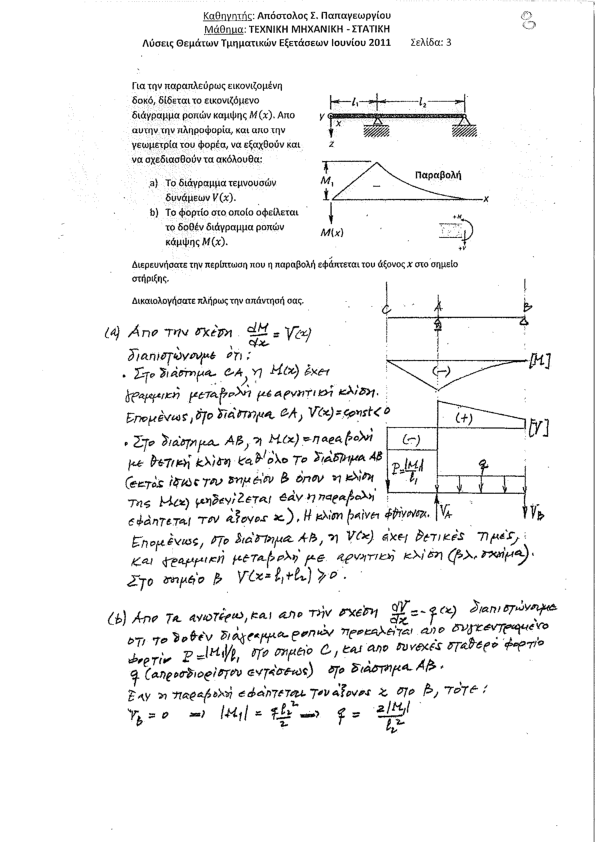 Καθηγητής: Απόστολος Σ. Παπαγεωργίου
Μάθημα: ΤΕΧΝΙΚΗ ΜΗΧΑΝΙΚΗ - ΣΤΑΤΙΚΗ
Λύσεις Θεμάτων Τμηματικών Εξετάσεων Ιουνίου 2011 Σελίδα: 3
8
Για την παραπλεύρως εικονιζομένη
δοκό, δίδεται το εικονιζόμενο
διάγραμμα ροπών καμψης M(x). Απο
αυτην την πληροφορία, και απο την
γεωμετρία του φορέα, να εξαχθούν και
να σχεδιασθούν τα ακόλουθα:
a) Το διάγραμμα τεμνουσών
δυνάμεων V(x).
b) Το φορτίο στο οποίο οφείλεται
το δοθέν διάγραμμα ροπών
κάμψης M(x).
l₁ l₂
y x
z
M₁ Παραβολή
− x
M(x) +M
+V
Διερευνήσατε την περίπτωση που η παραβολή εφάπτεται του άξονος x στο σημείο
στήριξης.
Δικαιολογήσατε πλήρως την απάντησή σας.
C A B
(a) Απο την σχέση dM/dx = V(x)
διαπιστώνουμε ότι:
• Στο διάστημα CA, η M(x) έχει
γραμμική μεταβολή με αρνητική κλίση.
Επομένως, στο διάστημα CA, V(x)=const<0
• Στο διάστημα AB, η M(x)=παραβολή
με θετική κλίση καθ'όλο το διάστημα AB
(εκτός ίσως του σημείου B όπου η κλίση
της M(x) μηδενίζεται εάν η παραβολή
εφάπτεται του άξονος x). Η κλίση βαίνει φθίνουσα.
Επομένως, στο διάστημα AB, η V(x) έχει θετικές τιμές,
και γραμμική μεταβολή με αρνητική κλίση (βλ. σχήμα).
Στο σημείο B V(x=l₁+l₂) ≥ 0.
(−) [M]
(+) [V]
(−)
P=|M₁|/l₁ q
V_A V_B
(b) Απο τα ανωτέρω, και απο την σχέση dV/dx = -q(x) διαπιστώνουμε
οτι το δοθέν διάγραμμα ροπών προκαλείται απο συγκεντρωμένο
φορτίο P=|M₁|/l₁ στο σημείο C, και απο συνεχές σταθερό φορτίο
q (απροσδιορίστου εντάσεως) στο διάστημα AB.
Εαν η παραβολή εφάπτεται του άξονος x στο B, τότε:
V_B = 0 ⇒ |M₁| = ql₂²/2 ⇒ q = 2|M₁|/l₂²